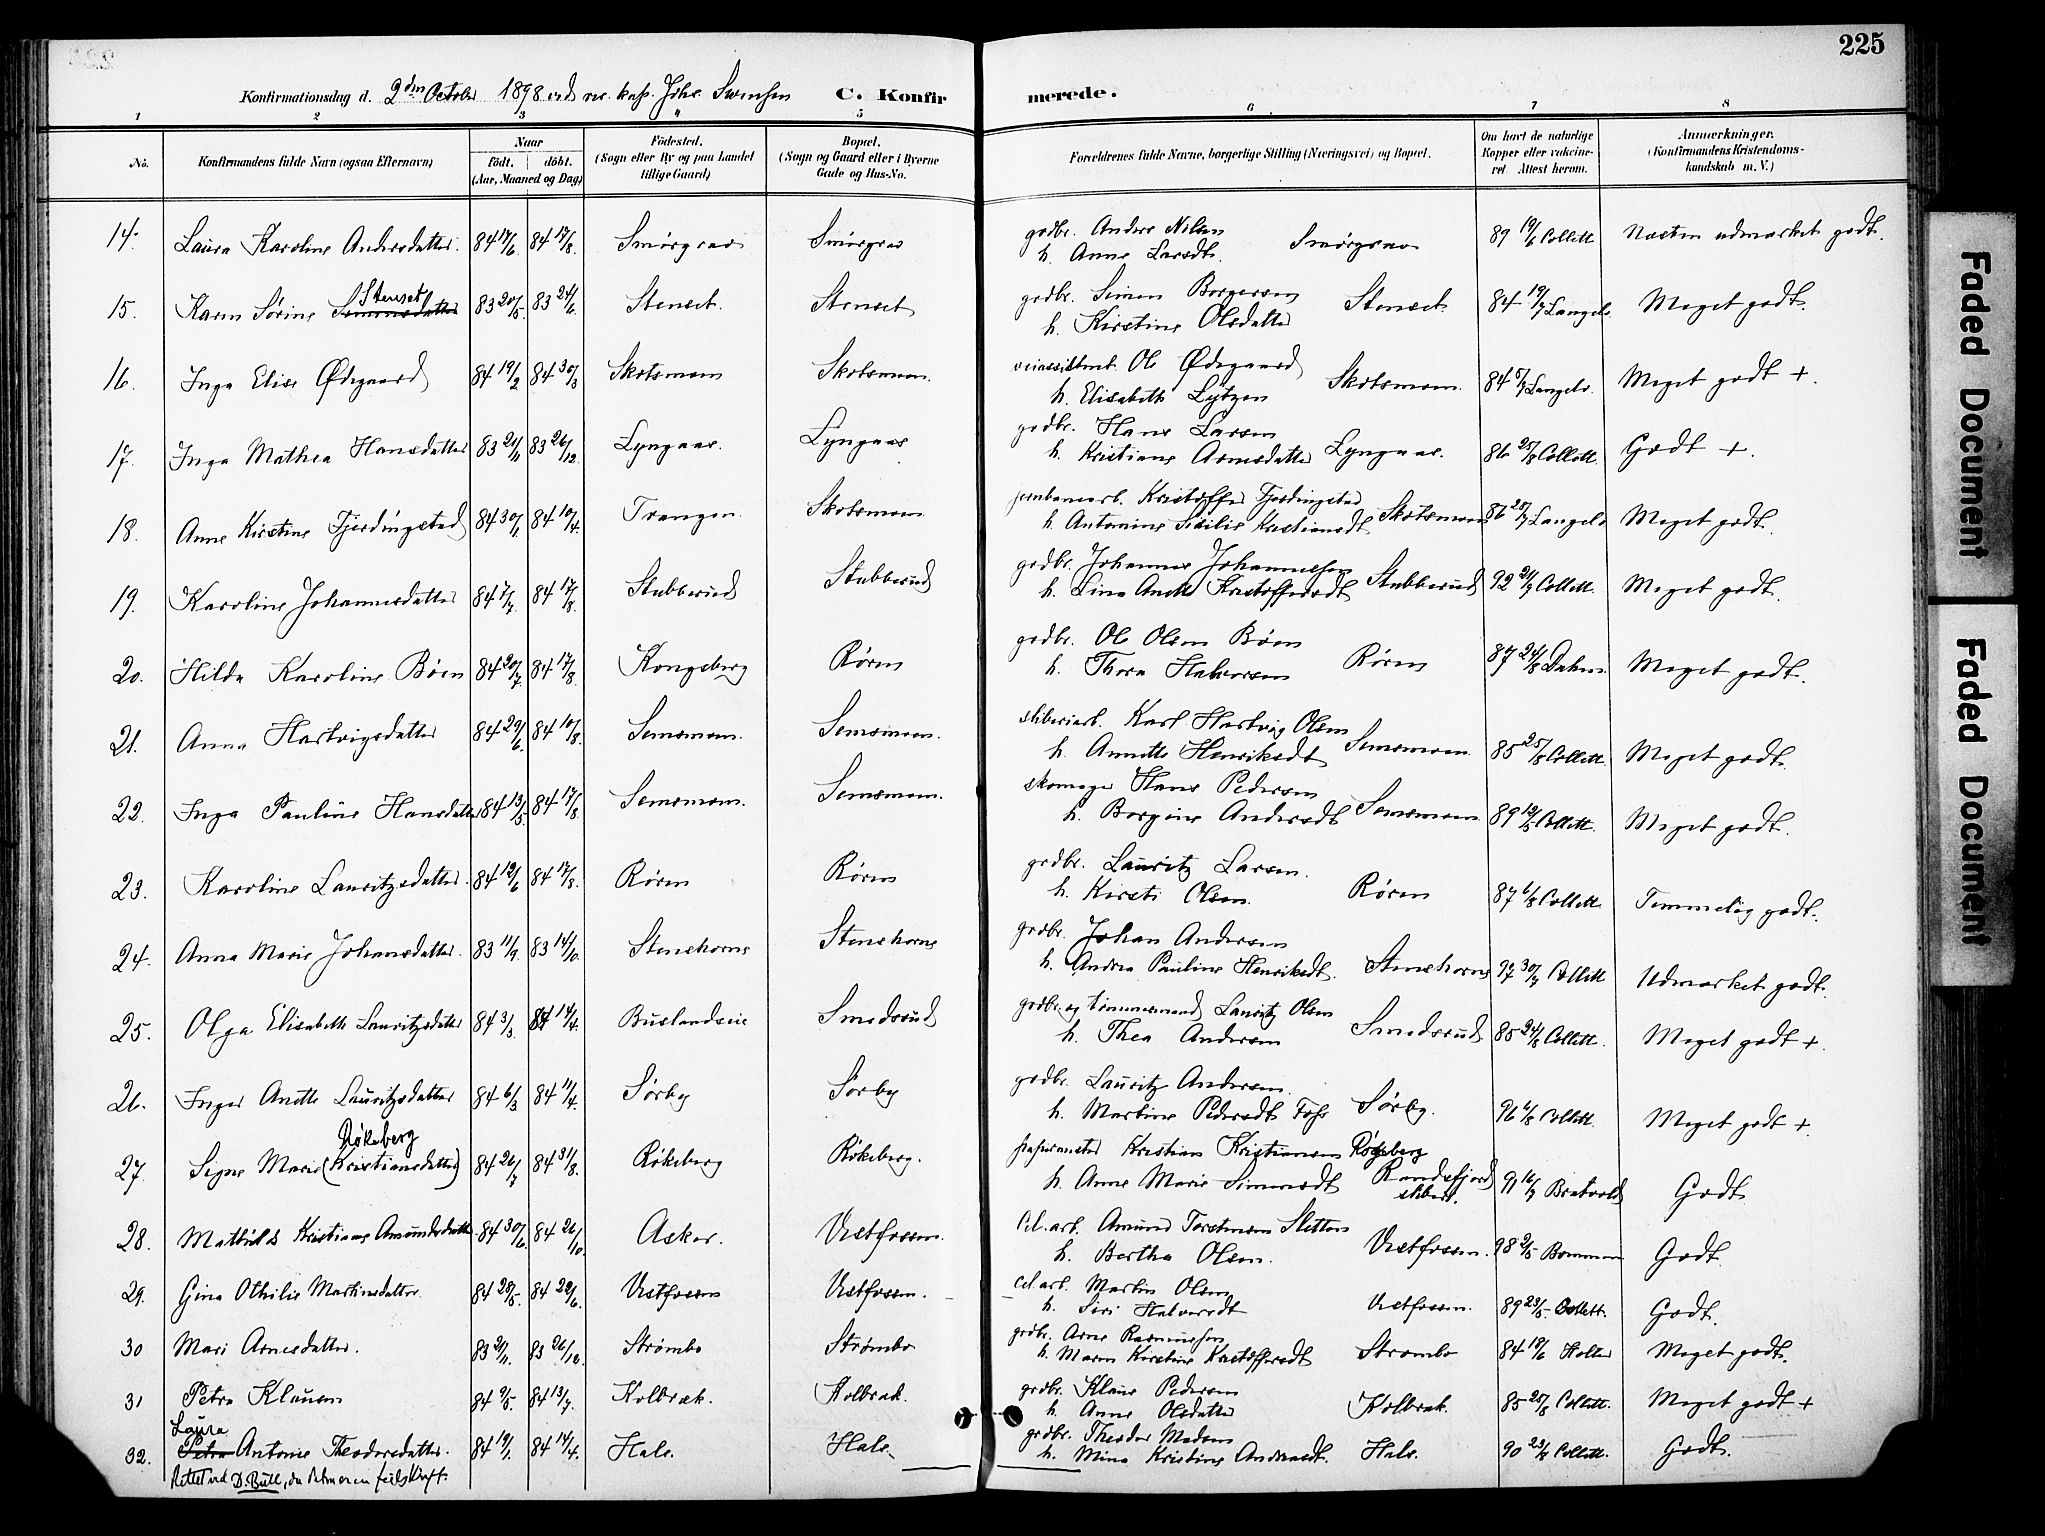 225
Konfirmationsdag d. 2den October 1898 ved Johs. Svensen C. Konfirmerede.
1 2 3 4 5 6 7 8
No. Konfirmandens fulde Navn (ogsaa Efternavn) Naar födt. döbt. (Aar, Maaned og Dag) Födested. (Sogn eller By og paa Landet tillige Gaard) Bopæl. (Sogn og Gaard eller i Byerne Gade og Hus-No. Forældrenes fulde Navne, borgerlige Stilling (Næringsvei) og Bopæl. Om havt de naturlige Kopper eller vakcineret. Attest herom. Anmærkninger. (Konfirmandens Kristendomskundskab m. V.)
14. Laura Karoline Andersdatter. 84 17/6. 84 17/8. Smørgrav Smørgrav grdbr. Anders Nilsen Smørgrav 89 19/6 Collett Næsten udmærket godt.
h. Anne Larsdt.
15. Karen Sørine Simensdatter Stenset 83 20/5. 83 24/6. Stenset. Stenset grdbr. Simen Borgersen Stenset. 84 19/7 Langeb. Meget godt.
h. Kirstine Olsdatter
16. Inga Elise Ødegaard 84 19/2 84 30/3 Skotsmoen Skotsmoen. veiassistent. Ole Ødegaard Skotsmoen. 84 5/7 Langeb. Meget godt +.
h. Elisabeth Lytzen
17. Inga Mathea Hansdatter 83 21/11 83 26/12. Lyngaas. Lyngaas grdbr. Hans Larsen Lyngaas. 86 25/8 Collett. Godt +.
h. Kristiane Arnesdatter
18. Anne Kirstine Fjerdingstad 84 30/1. 84 10/4. Trangen. Skotsmoen jernbanearb. Kristoffer Fjerdingstad Skotsmoen 86 28/7 Langeb. Meget godt.
h. Antonine Sisilie Kristiansdt.
19. Karoline Johannesdatter 84 7/7. 84 17/8. Stubberud Stubberud grdbr. Johannes Johannessen Stubberud 92 21/7 Collett. Meget godt.
h. Lina Anette Kristoffersdt
20. Hilda Karoline Bøen 84 20/7. 84 17/8. Kongsberg Røren grdbr. Ole Olsen Bøen Røren 87 24/8 Meget godt.
h. Thora Halvorsen
21. Anna Hartvigsdatter 84 29/6. 84 10/8. Semsmoen. Semsmoen. sliberiarb. Karl Hartvig Olsen Semsmoen. 85 25/8 Collett. Meget godt.
h. Annette Henriksdt
22. Inga Pauline Hansdatter 84 13/5. 84 17/8. Semsmoen. Semsmoen. skomager Hans Pedersen Semsmoen 89 12/5 Collett. Meget godt.
h. Borgine Andersdt
23. Karoline Lauritzsdatter. 84 12/6 84 17/8. Røren Røren grdbr. Lauritz Larsen. Røren 87 6/8 Collett. Temmelig godt.
h. Kirsti Olsen.
24. Anna Marie Johansdatter. 83 11/9. 83 14/10. Stenshorne Stenshorne grdbr. Johan Andersen Stenshorne 97 30/7 Collett Udmærket godt.
h. Andrea Pauline Henriksdt.
25. Olga Elisabeth Lauritzsdatter 84 3/3. 84 14/4. Buslandseie Smedsrud grdbr. og tømmermand Lauritz Olsen Smedsrud 85 24/8 Collett. Meget godt +.
h. Thea Andersen
26. Inger Anette Lauritzsdatter 84 6/3 84 11/4. Sørby Sørby grdbr. Lauritz Andersen. Sørby. 96 6/8 Collett. Meget godt +.
h. Martine Pedersdt
27. Signe Marie (Kristiansdatter) Røkeberg 84 26/7 84 31/8. Røkeberg Røkeberg. papirmester Kristian Kristiansen Røkeberg 91 16/7 Bratvold Godt.
h. Anne Marie Simensdt Randsfjord sliberi.
28. Mathilde Kristiane Amundsdatter 84 30/6. 84 26/10. Asker. Vestfossen. Cel. arb. Amund Torstensen Sletten Vestfossen. 98 2/5 Godt.
h. Bertha Olsen.
29. Gina Othilie Martinsdatter. 84 28/5. 84 22/6. Vestfossen Vestfossen. Cel. arb. Martin Olsen Vestfossen. 89 23/5. Collett. Godt.
h. Siri Halvorsdt
30 Mari Arnesdatter. 83 21/11. 83 26/12. Strømbo Strømbo grdbr. Arne Rasmussen Strømbo 84 18/6 Holter Meget godt.
h. Maren Kirstine Kristoffersdt
31 Petra Klausen 84 9/5. 84 13/7. Kolbræk. Kolbræk. grdbr. Klaus Pedersen Kolbræk. 85 25/8 Collett. Meget godt +
h. Anne Olsdatter
32. Petra Laura Antonie Theodorsdatter. 84 19/1. 84 14/4. Hals. Hals. grdbr. Theodor Madsen Hals. 90 23/8 Collett. Godt.
h. Mina Kristine Andersdt.
Rettet ved D. Bull, da Petra er en feilskrift.
Faded Document
Faded Document